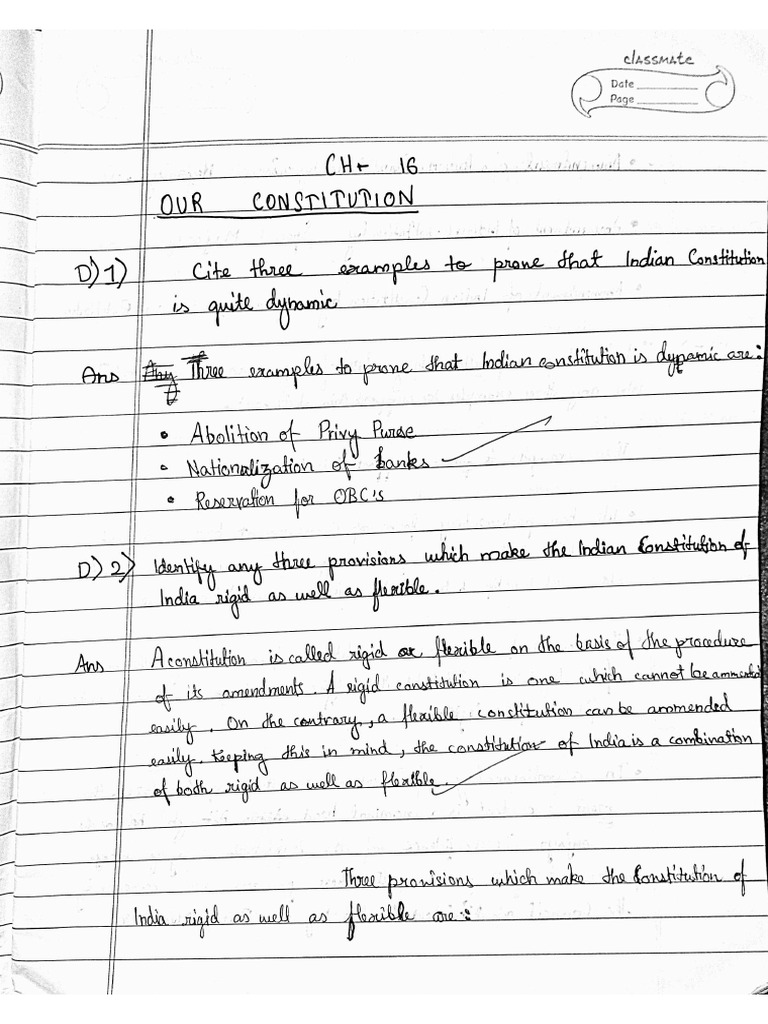 classmate
Date
Page
CH- 16
OUR CONSTITUTION
D) 1) Cite three examples to prove that Indian Constitution
is quite dynamic
Ans Three examples to prove that Indian constitution is dynamic are:
• Abolition of Privy Purse
• Nationalization of banks
• Reservation for OBC's
D) 2) Identify any three provisions which make the Indian Constitution of
India rigid as well as flexible.
Ans A constitution is called rigid or flexible on the basis of the procedure
of its amendments. A rigid constitution is one which cannot be
easily. On the contrary, a flexible constitution can be ammended
easily. Keeping this in mind, the constitution of India is a combination
of both rigid as well as flexible.
Three provisions which make the Constitution of
India rigid as well as flexible are: